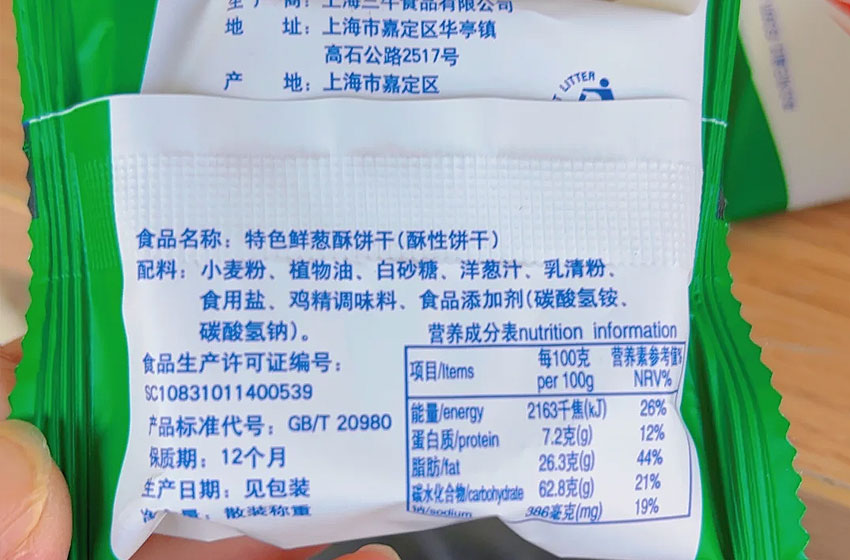 生产商：上海三牛食品有限公司
地 址：上海市嘉定区华亭镇
高石公路2517号
产 地：上海市嘉定区
LITTER
食品名称：特色鲜葱酥饼干(酥性饼干)
配料：小麦粉、植物油、白砂糖、洋葱汁、乳清粉、
食用盐、鸡精调味料、食品添加剂(碳酸氢铵、
碳酸氢钠)。
营养成分表nutrition information
食品生产许可证编号：
SC10831011400539
产品标准代号：GB/T 20980
保质期：12个月
生产日期：见包装
净含量：散装称重
项目/Items 每100克 per 100g 营养素参考值% NRV%
能量/energy 2163千焦(kJ) 26%
蛋白质/protein 7.2克(g) 12%
脂肪/fat 26.3克(g) 44%
碳水化合物/carbohydrate 62.8克(g) 21%
钠/sodium 386毫克(mg) 19%